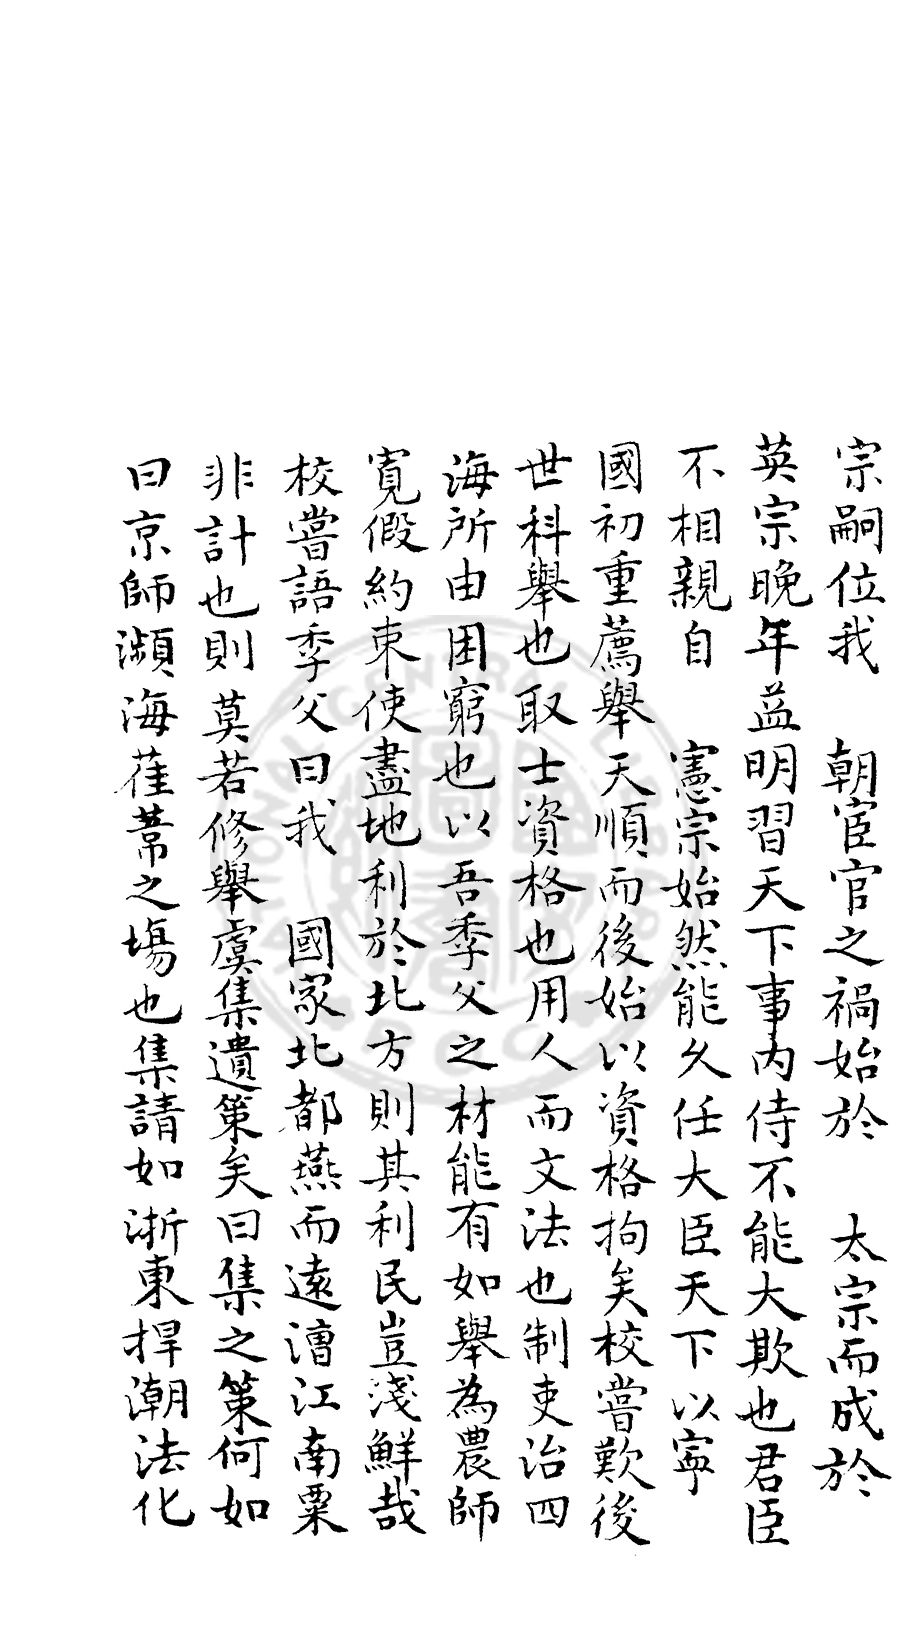 宗嗣位我　朝宦官之禍始於　太宗而成於
英宗晚年益明習天下事內侍不能大欺也君臣
不相親自　憲宗始然能久任大臣天下以寧
國初重薦舉天順而後始以資格拘矣校嘗歎後
世科舉也取士資格也用人而文法也制吏治四
海所由困窮也以吾季父之材能有如舉為農師
寬假約束使盡地利於北方則其利民豈淺鮮哉
校嘗語季父曰我　國家北都燕而遠漕江南粟
非計也則莫若修舉虞集遺策矣曰集之策何如
曰京師瀕海萑葦之場也集請如浙東捍潮法化